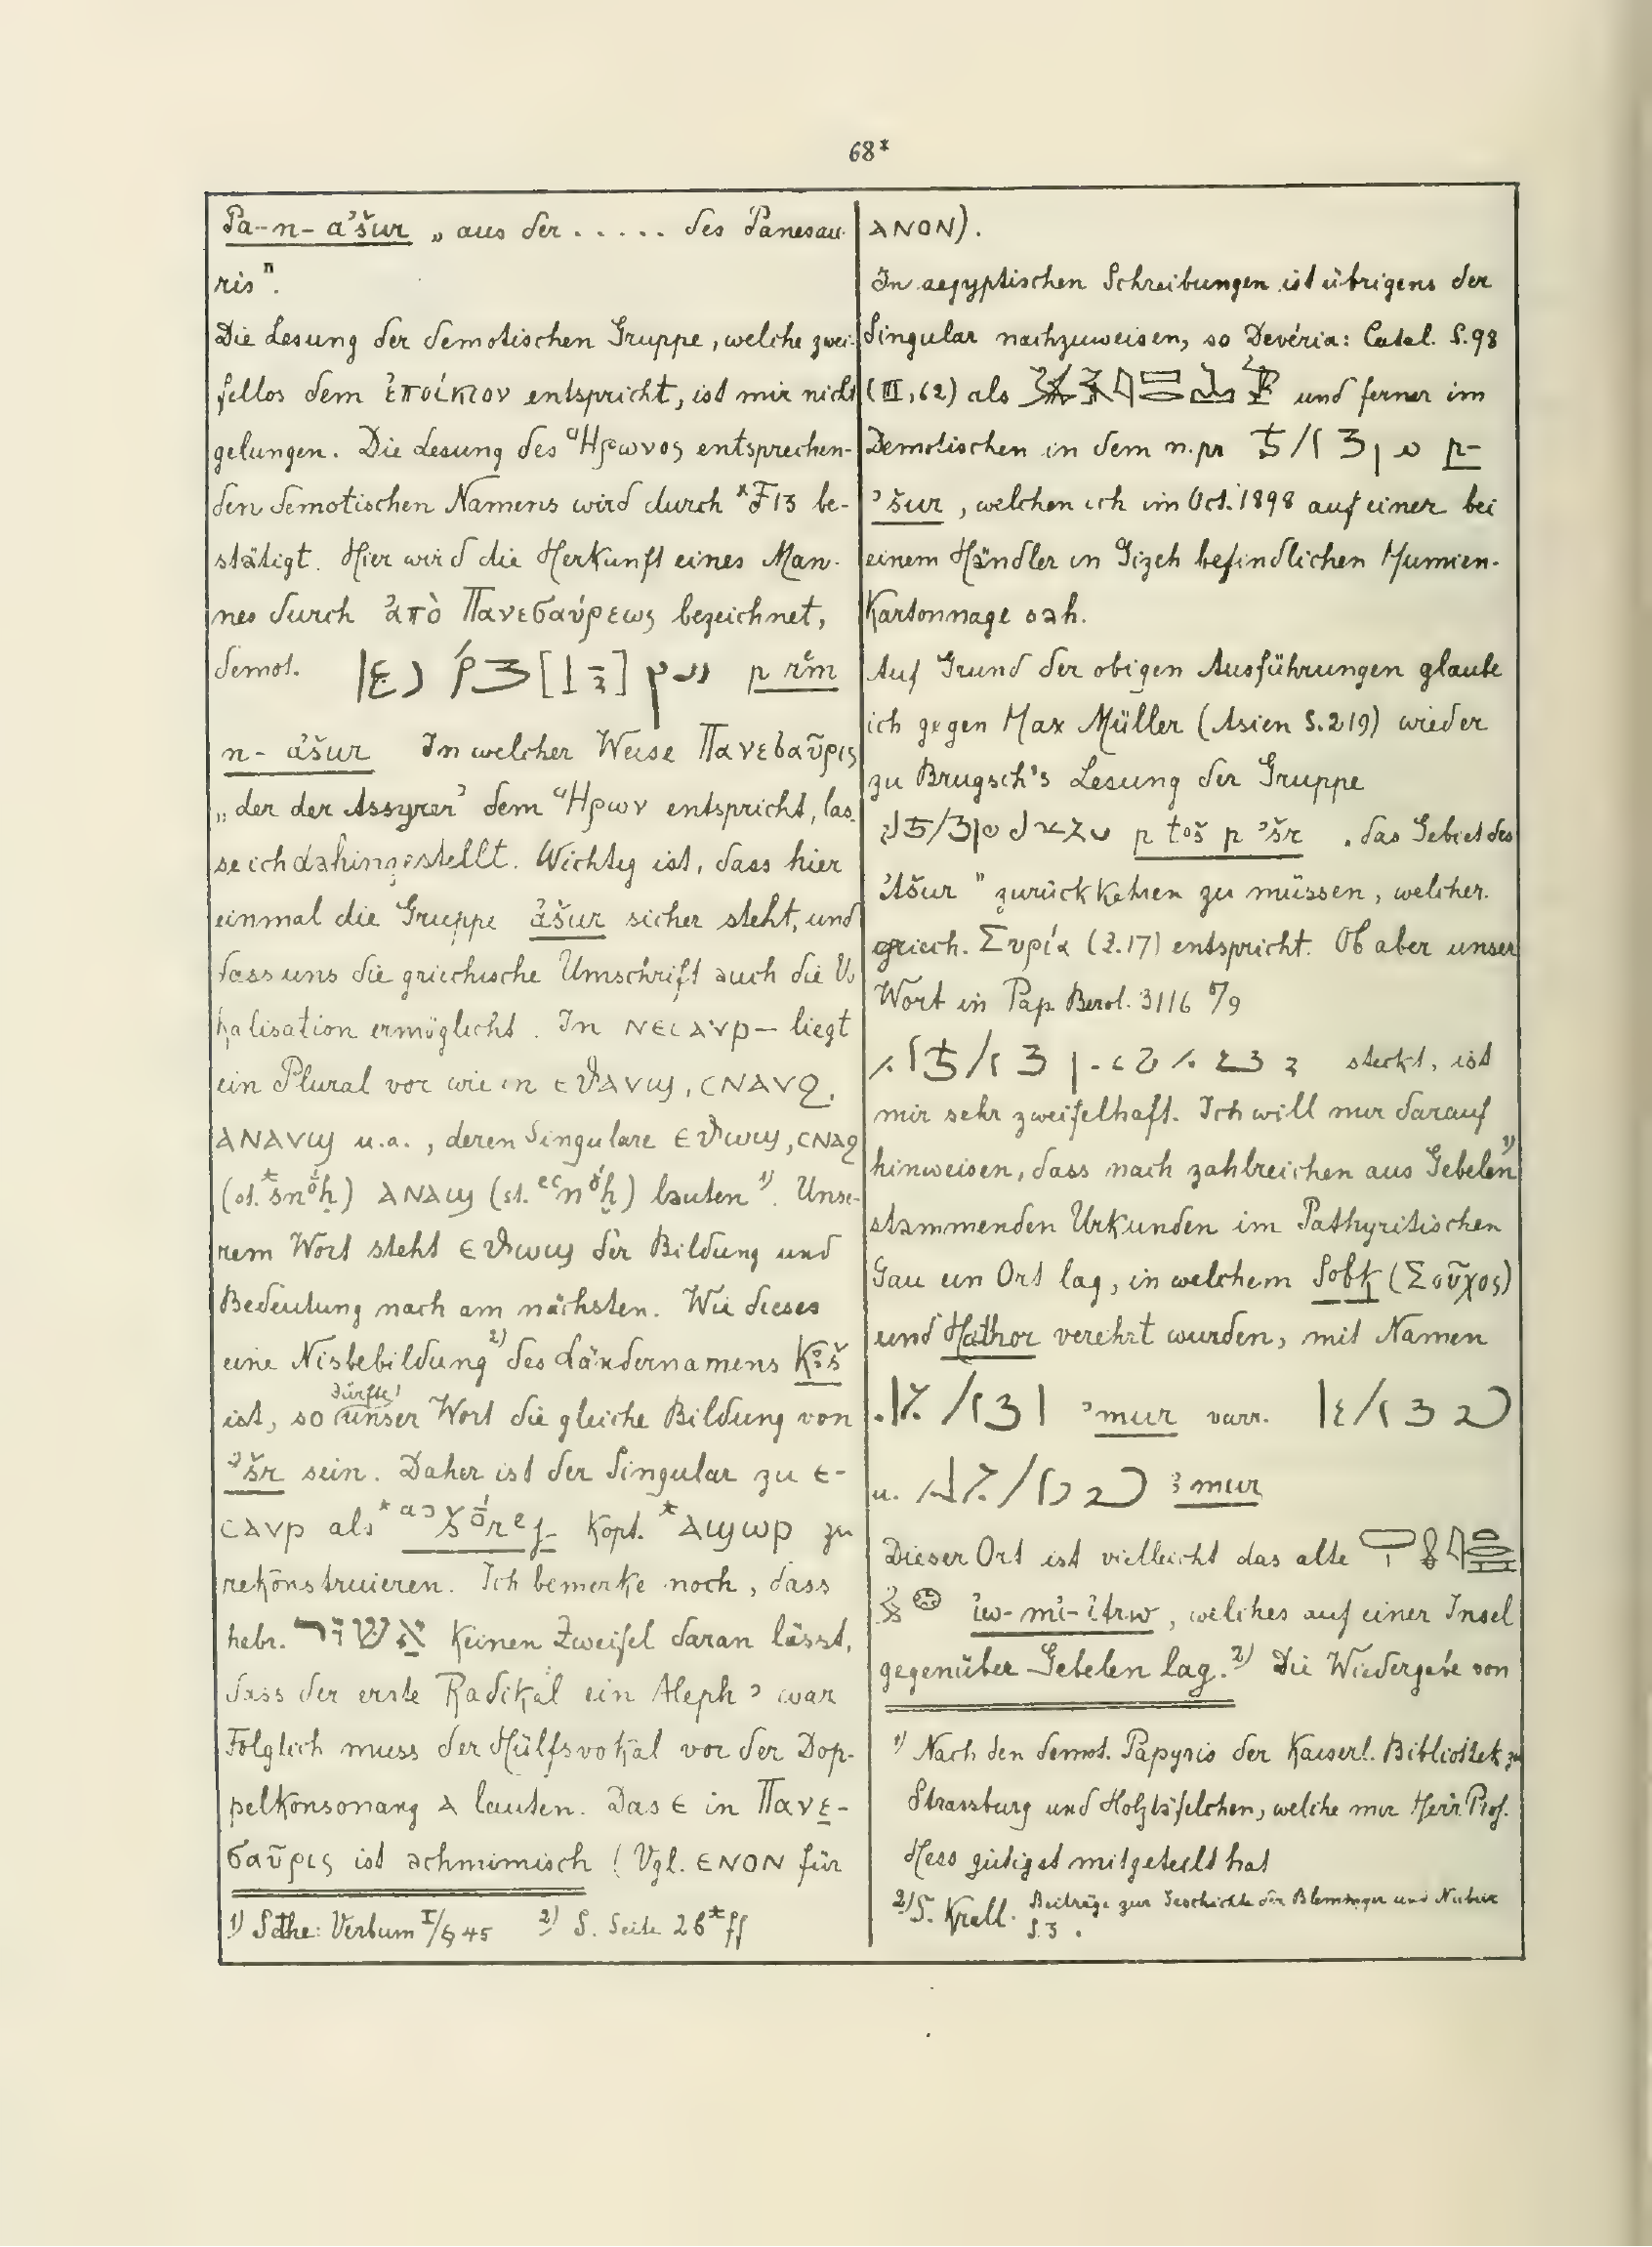 68*
Pa-n-a'šur „aus der ..... des Panesau-
ris".
Die Lesung der demotischen Gruppe, welche zwei-
fellos dem ἐποίκιον entspricht, ist mir nicht
gelungen. Die Lesung des Ἥρωνος entsprechen-
den demotischen Namens wird durch *F 13 be-
stätigt. Hier wird die Herkunft eines Man-
nes durch ἀπὸ Πανεσαύρεως bezeichnet,
demot. p rm̊
n-a'šur In welcher Weise Πανεσαῦρις
„der der Assyrer" dem Ἥρων entspricht, las-
se ich dahingestellt. Wichtig ist, dass hier
einmal die Gruppe a'šur sicher steht, und
dass uns die griechische Umschrift auch die Vo-
kalisation ermöglicht. In ⲚⲈⲤⲀⲨⲢ- liegt
ein Plural vor wie in ⲈϬⲀⲨϢ, ⲤⲚⲀⲨϨ,
ⲀⲚⲀⲨϢ u.a., deren Singulare ⲈϬⲰϢ, ⲤⲚⲀϨ
(st. *šnŏḥ) ⲀⲚⲀϢ (st. nŏḫ) lauten 1). Unse-
rem Wort steht ⲈϬⲰϢ der Bildung und
Bedeutung nach am nächsten. Wie dieses
eine Nisbebildung 2) des Ländernamens Kꜣš
ist, so dürfte unser Wort die gleiche Bildung von
ꜣšr sein. Daher ist der Singular zu Ⲉ-
ⲤⲀⲨⲢ als Kopt. *ⲀϢⲰⲢ zu
rekonstruieren. Ich bemerke noch, dass
hebr. אשּׁוּר keinen Zweifel daran lässt,
dass der erste Radikal ein Aleph ꜣ war
Folglich muss der Hülfsvokal vor der Dop-
pelkonsonanz Ⲁ lauten. Das Ⲉ in Πανε-
σαῦρις ist achmimisch (Vgl. ⲈⲚⲞⲚ für
1) Sethe: Verbum I/§ 45 2) S. Seite 26* ff
ⲀⲚⲞⲚ).
In aegyptischen Schreibungen ist übrigens der
Singular nachzuweisen, so Devéria: Catal. S. 98
(III, 62) als und ferner im
Demotischen in dem n.pr p-
ꜣšur, welchen ich im Oct. 1898 auf einer bei
einem Händler in Gizeh befindlichen Mumien-
Kartonnage sah.
Auf Grund der obigen Ausführungen glaube
ich gegen Max Müller (Asien S. 219) wieder
zu Brugsch's Lesung der Gruppe
p toš p ꜣšr „das Gebiet des
Ašur" zurückkehren zu müssen, welcher
griech. Συρία (Z. 17) entspricht. Ob aber unser
Wort in Pap. Berol. 3116 6/9
steckt, ist
mir sehr zweifelhaft. Ich will nur darauf
hinweisen, dass nach zahlreichen aus Gebelen 1)
stammenden Urkunden im Pathyritischen
Gau ein Ort lag, in welchem Sobk (Σοῦχος)
und Hathor verehrt wurden, mit Namen
ꜣmur varr.
u. ꜣmur
Dieser Ort ist vielleicht das alte
iw-mi-itrw, welches auf einer Insel
gegenüber Gebelen lag. 2) Die Wiedergabe von
1) Nach den demot. Papyris der Kaiserl. Bibliothek zu
Strassburg und Holztäfelchen, welche mir Herr Prof.
Hess gütigst mitgeteilt hat
2) S. Krall. Beiträge zur Geschichte der Blemmyer und Nubier
S. 3.